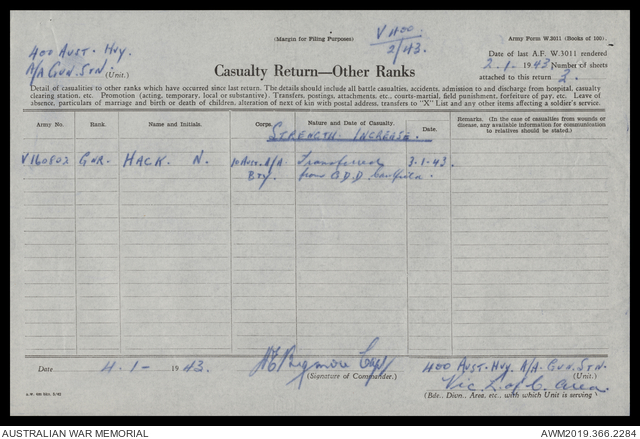 (Margin for Filing Purposes)
V A00.
2/43.
Army Form W.3011 (Books of 100).
400 AUST. HVY.
A/A GUN. STN. (Unit.)
Date of last A.F. W.3011 rendered
2-1-1943 Number of sheets
attached to this return 2.
Casualty Return—Other Ranks
Detail of casualties to other ranks which have occurred since last return. The details should include all battle casualties, accidents, admission and discharge from hospital, casualty
clearing station, etc. Promotion (acting, temporary, local or substantive). Transfers, postings, attachments, etc., courts-martial, field punishment, forfeiture of pay, etc. Leave of
absence, particulars of marriage and birth or death of children, alteration of next of kin with postal address, transfers to "X" List and any other items affecting a soldier's service.
Army No. Rank. Name and Initials. Corps. Nature and Date of Casualty. Date. Remarks. (In the case of casualties from wounds or disease, any available information for communication to relatives should be stated.)
STRENGTH INCREASE.
V160802 GNR. HACK. N. 10 AUST. A/A Transferred 3-1-43.
BTY. from G.D.D. Caulfield.
Date 4-1- 1943.
Capt
(Signature of Commander.)
400 AUST. HVY. A/A. GUN. STN.
(Unit.)
Vic L of C Area.
(Bde., Divn., Area, etc., with which Unit is serving)
AUSTRALIAN WAR MEMORIAL
AWM2019.366.2284